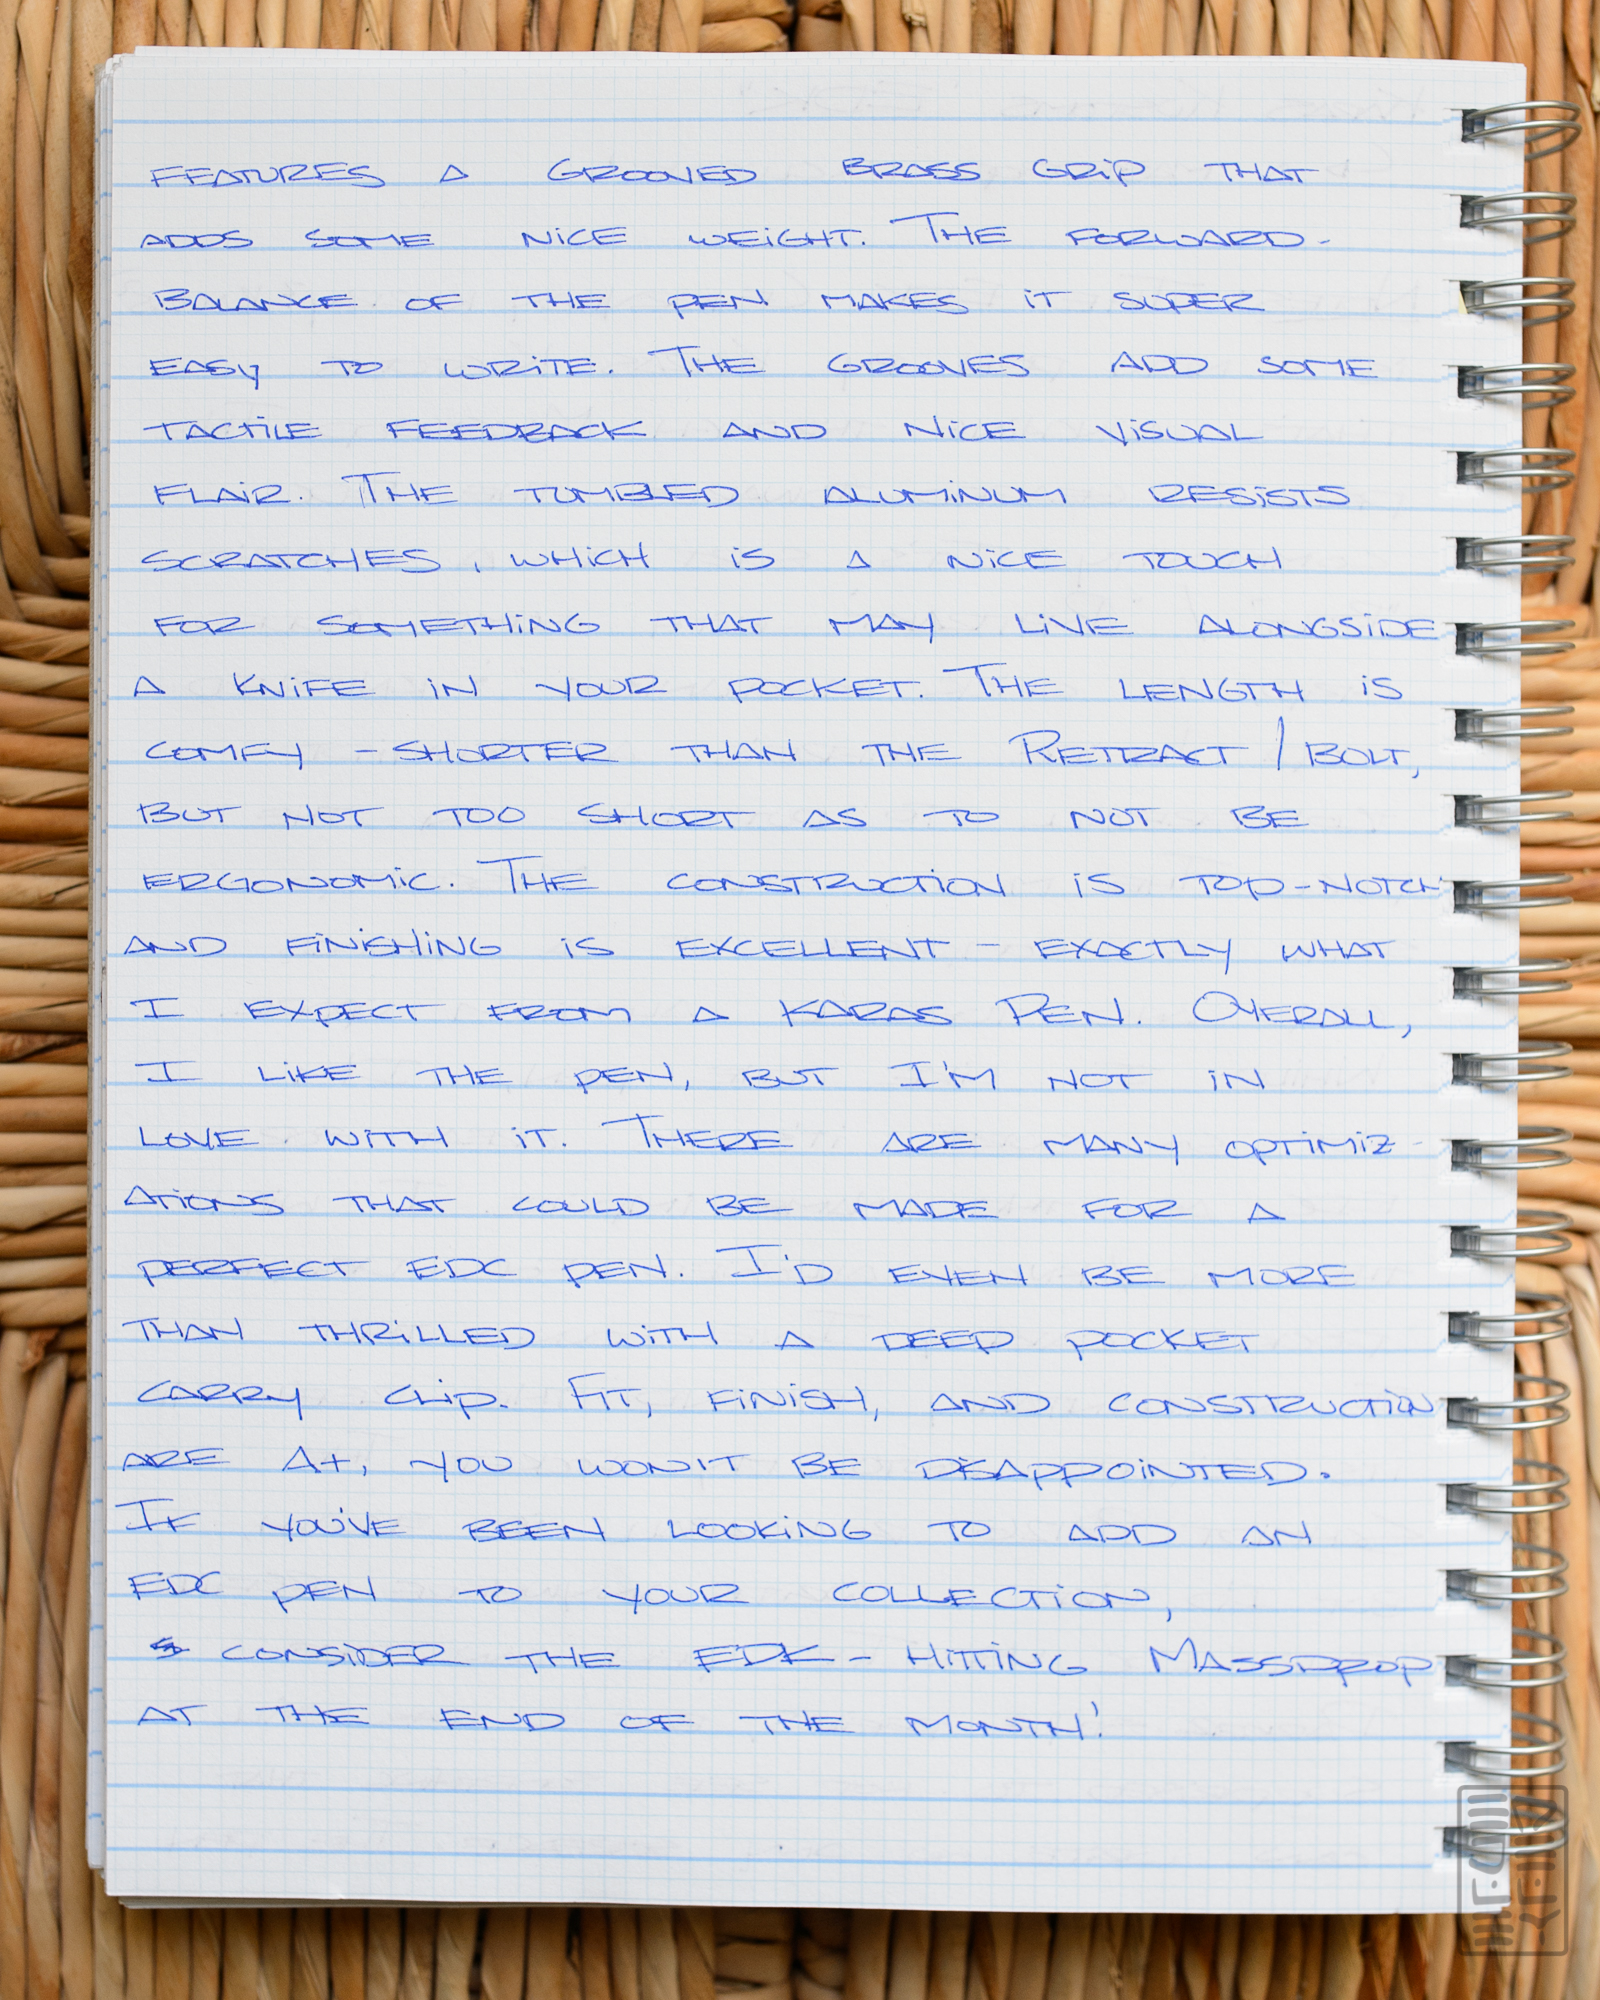 FEATURES A GROOVED BRASS GRIP THAT
ADDS SOME NICE WEIGHT. THE FORWARD-
BALANCE OF THE PEN MAKES IT SUPER
EASY TO WRITE. THE GROOVES ADD SOME
TACTILE FEEDBACK AND NICE VISUAL
FLAIR. THE TUMBLED ALUMINUM RESISTS
SCRATCHES, WHICH IS A NICE TOUCH
FOR SOMETHING THAT MAY LIVE ALONGSIDE
A KNIFE IN YOUR POCKET. THE LENGTH IS
COMFY - SHORTER THAN THE RETRACT / BOLT,
BUT NOT TOO SHORT AS TO NOT BE
ERGONOMIC. THE CONSTRUCTION IS TOP-NOTCH
AND FINISHING IS EXCELLENT - EXACTLY WHAT
I EXPECT FROM A KARAS PEN. OVERALL,
I LIKE THE PEN, BUT I'M NOT IN
LOVE WITH IT. THERE ARE MANY OPTIMIZ-
ATIONS THAT COULD BE MADE FOR A
PERFECT EDC PEN. I'D EVEN BE MORE
THAN THRILLED WITH A DEEP POCKET
CARRY CLIP. FIT, FINISH, AND CONSTRUCTION
ARE A+, YOU WON'T BE DISAPPOINTED.
IF YOU'VE BEEN LOOKING TO ADD AN
EDC PEN TO YOUR COLLECTION,
CONSIDER THE EDK - HITTING MASSDROP
AT THE END OF THE MONTH!